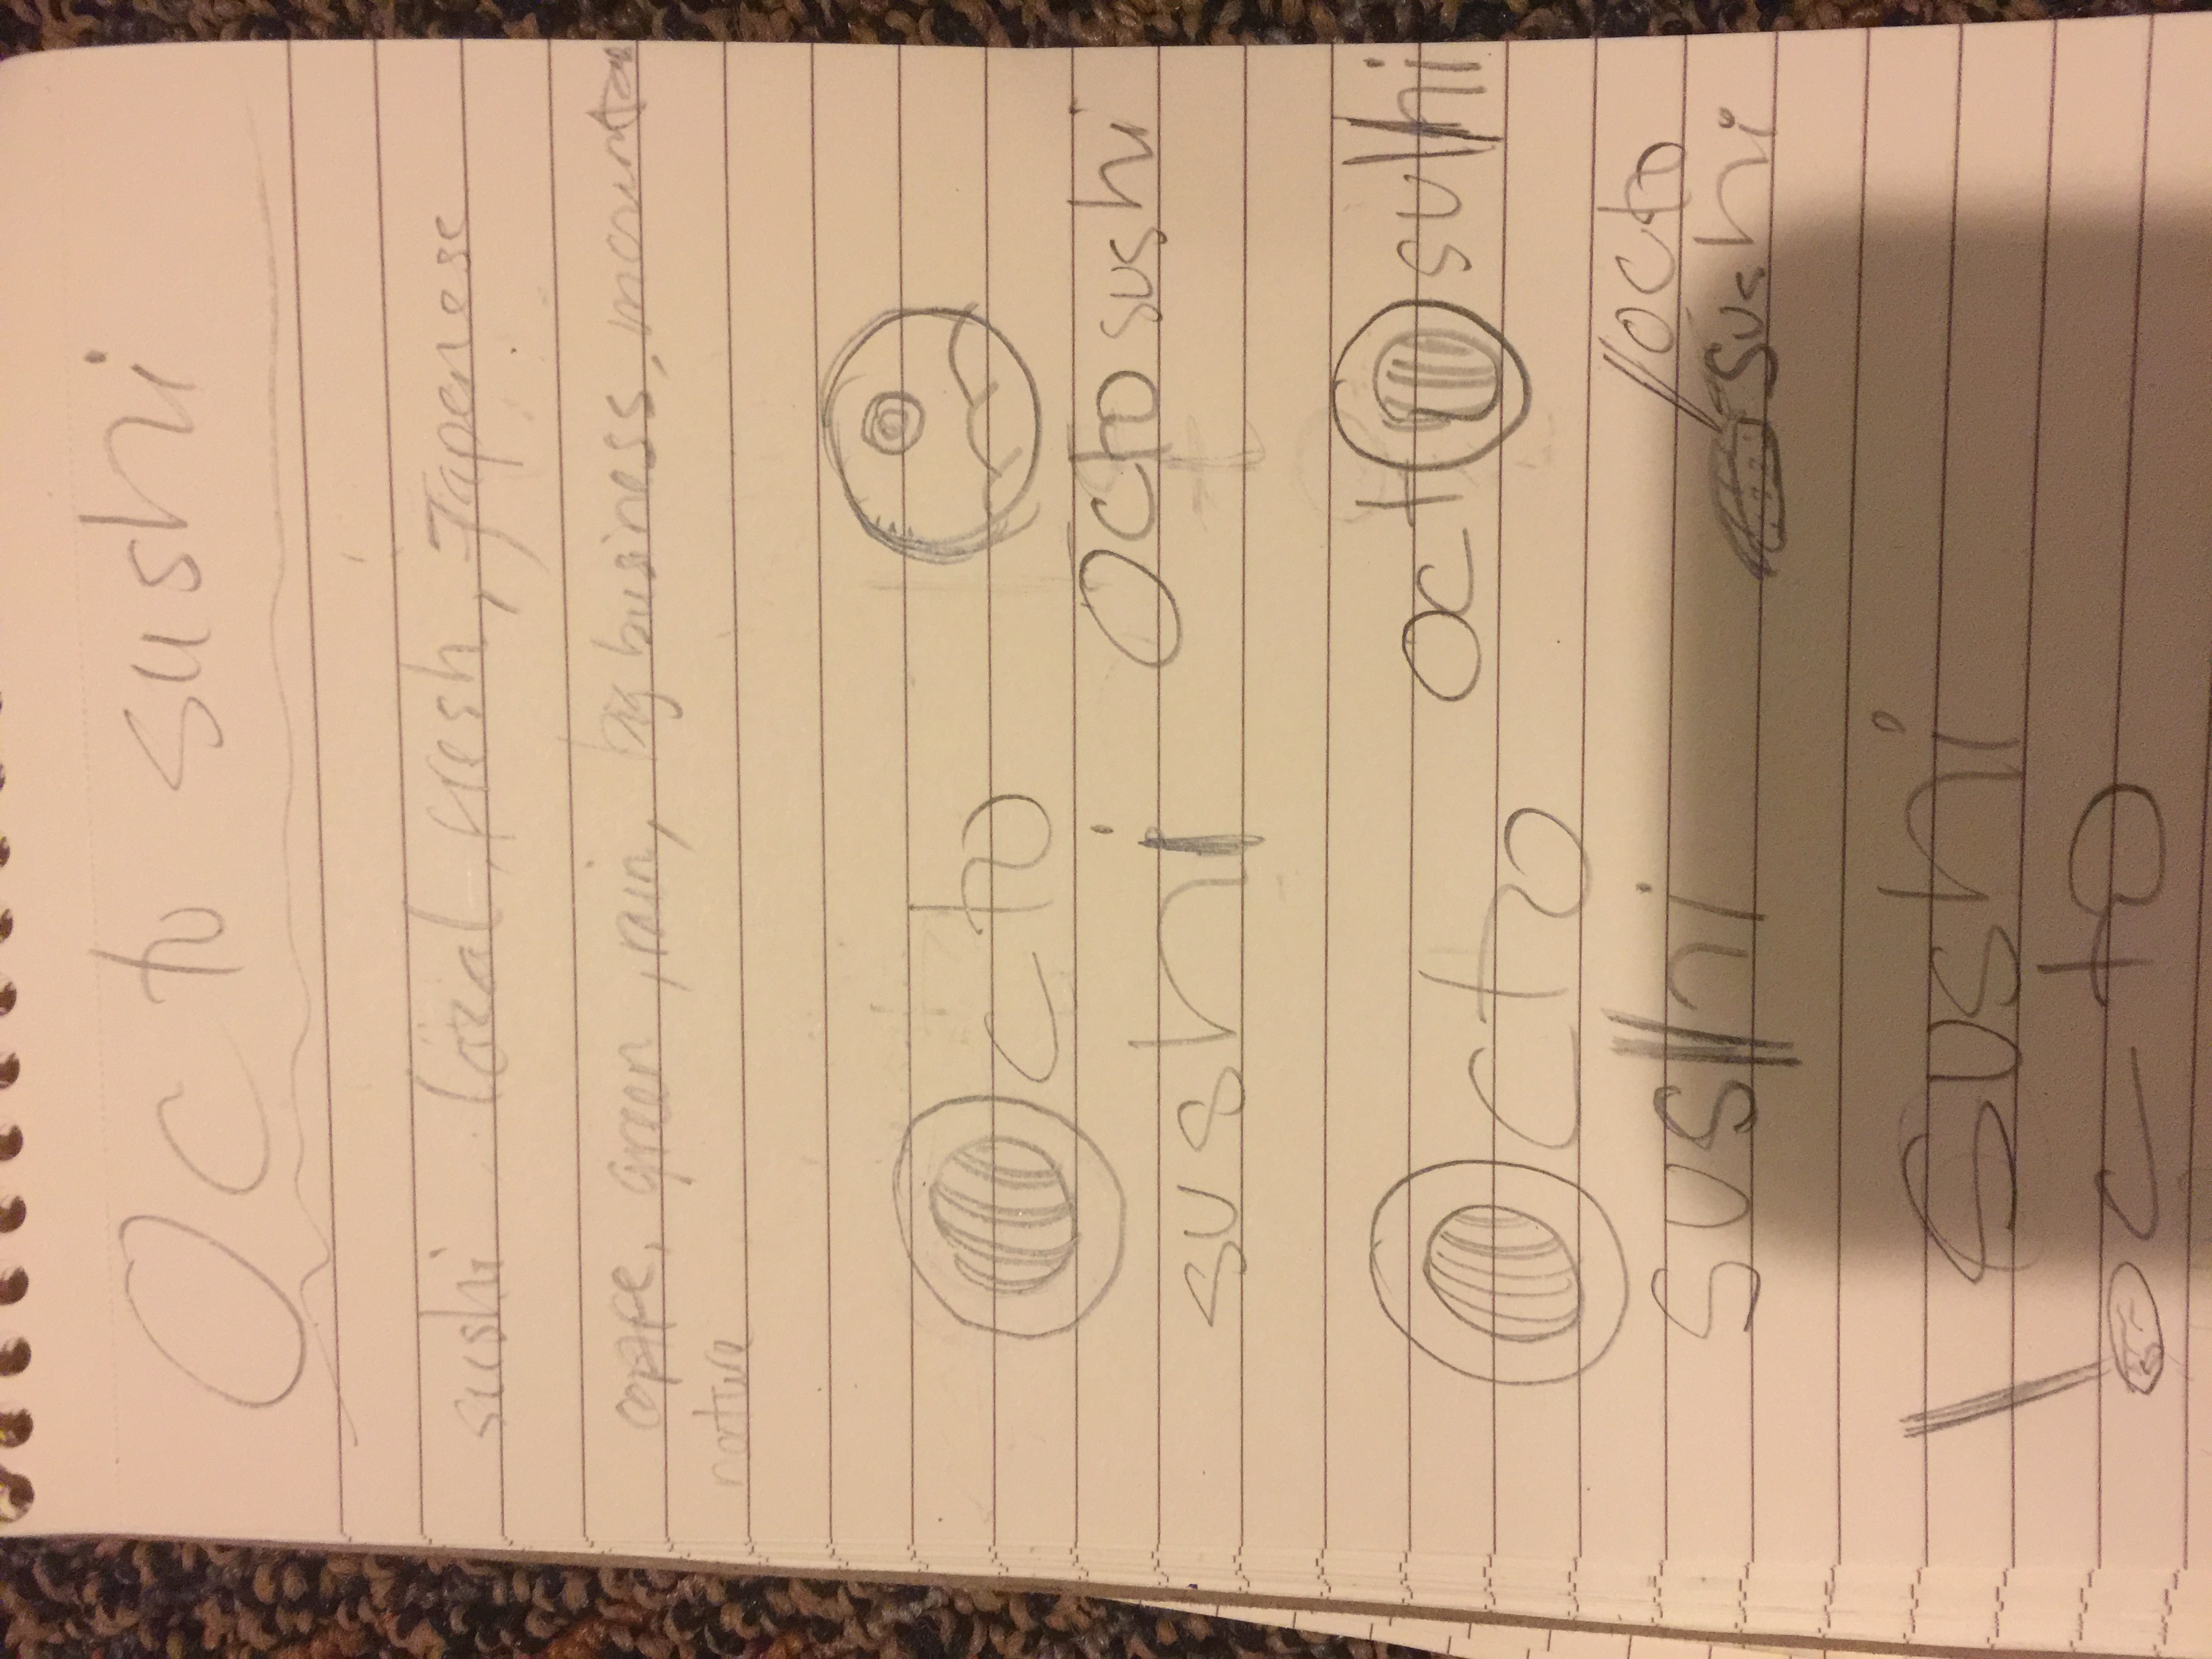 Octo sushi
sushi local, fresh, Japenese
green, rain, big business, mountain
nature
Octo
sushi
Octo sushi
Octo
sushi
Octo sushi
octo
sushi
sushi
octo